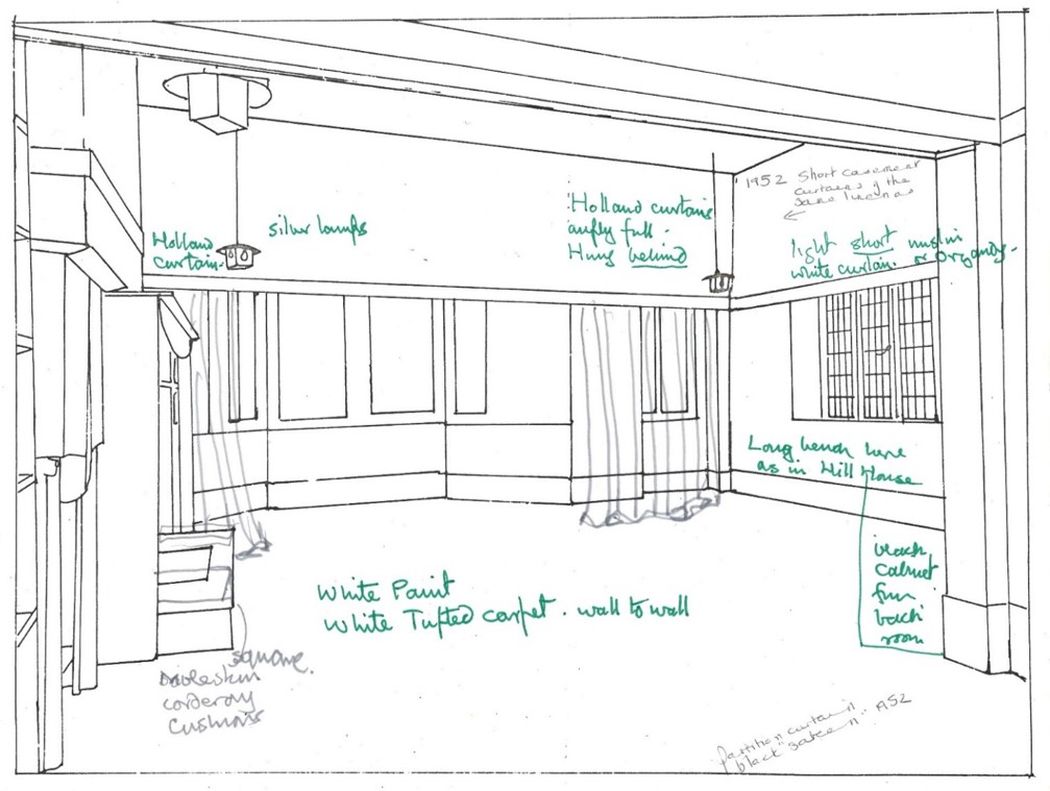 1952 Short casement
curtains of the
same linen as
Holland
curtain.
silver lamps
Holland curtains
amply full.
Hung behind
light short muslin
white curtain. or Organdy.
Long bench here
as in Hill House
black
cabinet
from
back
room
White Paint
White Tufted carpet. wall to wall
square.
moleskin
corderoy
cushions
Partition curtain
black "sateen". 1952